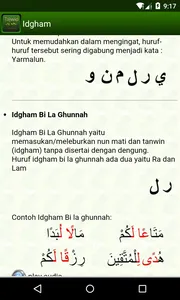 9:17
Idgham
Untuk memudahkan dalam mengingat, huruf-
huruf tersebut sering digabung menjadi kata :
Yarmalun.
ي ر ل م ن و
Idgham Bi La Ghunnah
Idgham Bi La Ghunnah yaitu
memasukan/meleburkan nun mati dan tanwin
(idgham) tanpa disertai dengan dengung.
Huruf idgham bi la ghunnah ada dua yaitu Ra dan
Lam
ر ل
Contoh Idgham Bi la ghunnah:
مَتَاعًا لَكُمْ مَالًا لُبَدًا
هُدًى لِلْمُتَّقِينَ رِزْقًا لَكُمْ
play audio